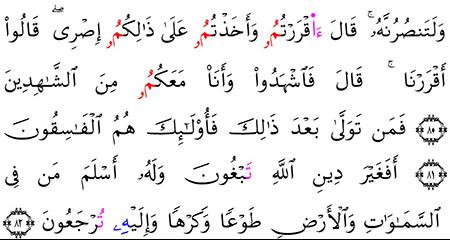 وَلَتَنصُرُنَّهُۥۚ قَالَ ءَا۬قْرَرْتُمُۥ وَأَخَذْتُمُۥ عَلَىٰ ذَٰلِكُمُۥٓ إِصْرِىۖ قَالُوٓاْ
أَقْرَرْنَاۚ قَالَ فَٱشْهَدُواْ وَأَنَا۠ مَعَكُمُۥ مِنَ ٱلشَّٰهِدِينَ
٨٠ فَمَن تَوَلَّىٰ بَعْدَ ذَٰلِكَ فَأُوْلَٰٓئِكَ هُمُ ٱلْفَٰسِقُونَ
٨١ أَفَغَيْرَ دِينِ ٱللَّهِ تَبْغُونَ وَلَهُۥٓ أَسْلَمَ مَن فِى
ٱلسَّمَٰوَٰتِ وَٱلْأَرْضِ طَوْعًا وَكَرْهًا وَإِلَيْهِۦ تُرْجَعُونَ ٨٢